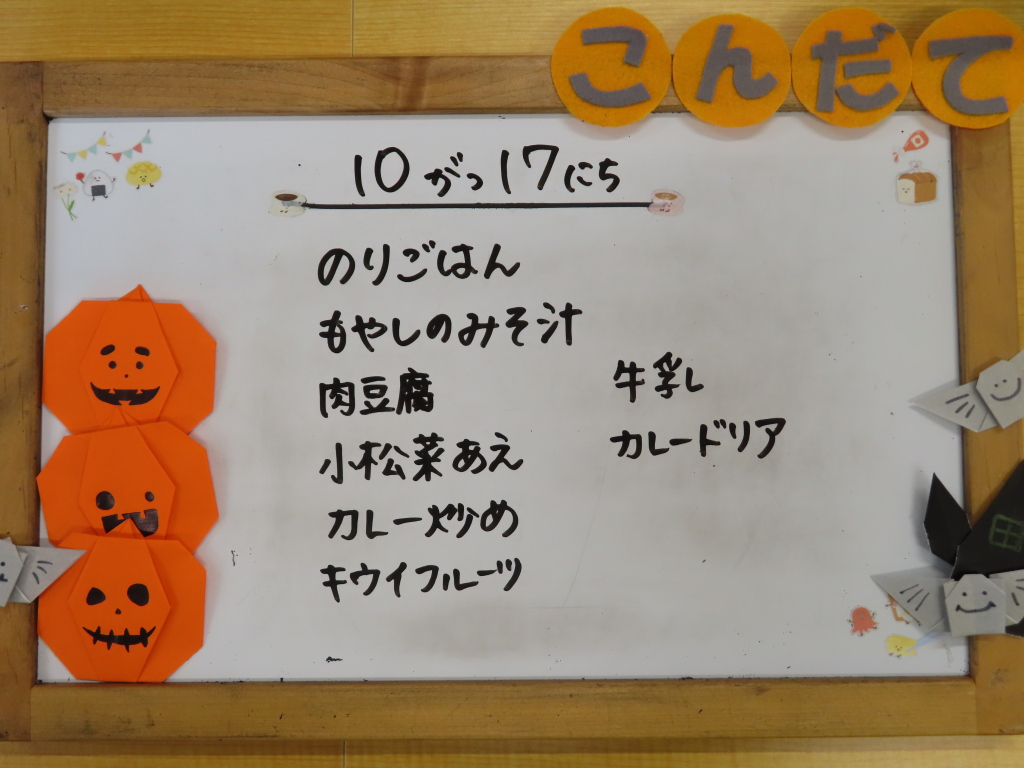 こんだて
10がつ17にち
のりごはん
もやしのみそ汁
肉豆腐
小松菜あえ
カレー炒め
キウイフルーツ
牛乳
カレードリア